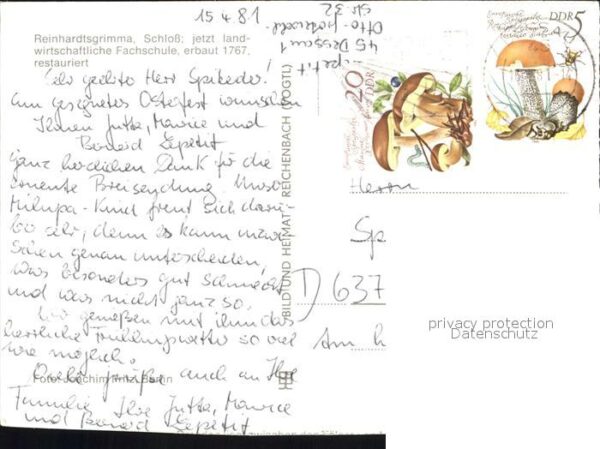 15.4.81
Reinhardtsgrimma, Schloß; jetzt land-
wirtschaftliche Fachschule, erbaut 1767,
restauriert
Sehr geehrter Herr Spikeder!
Ein gesegnetes Osterfest wünschen
Ihnen Jutta, Maurice und
Bernard Lepetit
Ganz herzlichen Dank für die
erneute Breisendung. Unser
Milupa-Kind freut sich darü-
ber sehr, denn es kann inzwi-
schen genau unterscheiden,
was besonders gut schmeckt
und was nicht ganz so.
Wir genießen mit ihm das
herrliche Frühlingswetter so viel
wie möglich.
Grüße auch an Ihre
Familie Ihre Jutta, Maurice
und Bernard Lepetit
Foto: Joachim Fritz, Berlin
BILD UND HEIMAT REICHENBACH (VOGTL)
Lepetit
45 Dessau 1
Str. 32
20
DDR
DDR 5
Herrn
Sp
D 637
Am
privacy protection
Datenschutz